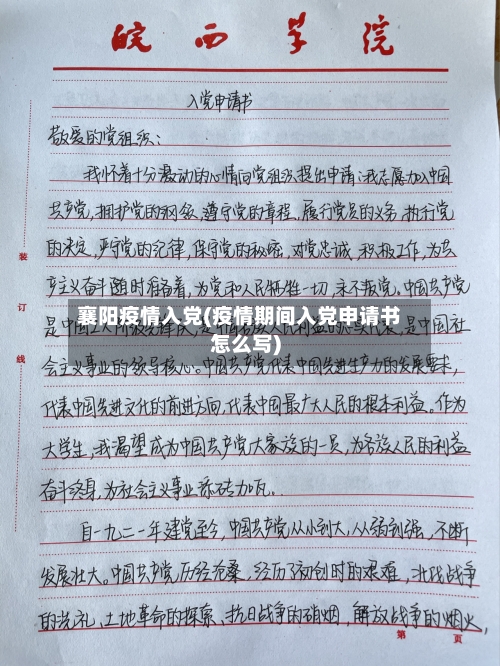 皖西学院
入党申请书
敬爱的党组织:
我怀着十分激动的心情向党组织提出申请:我志愿加入中国
共产党,拥护党的纲领,遵守党的章程,履行党员的义务,执行党
的决定,严守党的纪律,保守党的秘密,对党忠诚,积极工作,为共
产主义奋斗
随时
为党和人民牺牲一切,永不叛党。中国共产党
襄阳疫情入党(疫情期间入党申请书
怎么写)
是中国
是中国社
会主义事业的领导核心。中国共产党代表中国先进生产力的发展要求,
代表中国先进文化的前进方向,代表中国最广大人民的根本利益。作为
大学生,我渴望成为中国共产党大家族的一员,为各族人民的利益
奋斗终身,为社会主义事业添砖加瓦。
自一九二一年建党至今,中国共产党从小到大,从弱到强,不断
发展壮大。中国共产党历经沧桑,经历了初创时的艰难,北伐战争
的洗礼,土地革命的探索、抗日战争的硝烟,解放战争的烟火,
装
订
线
第 页